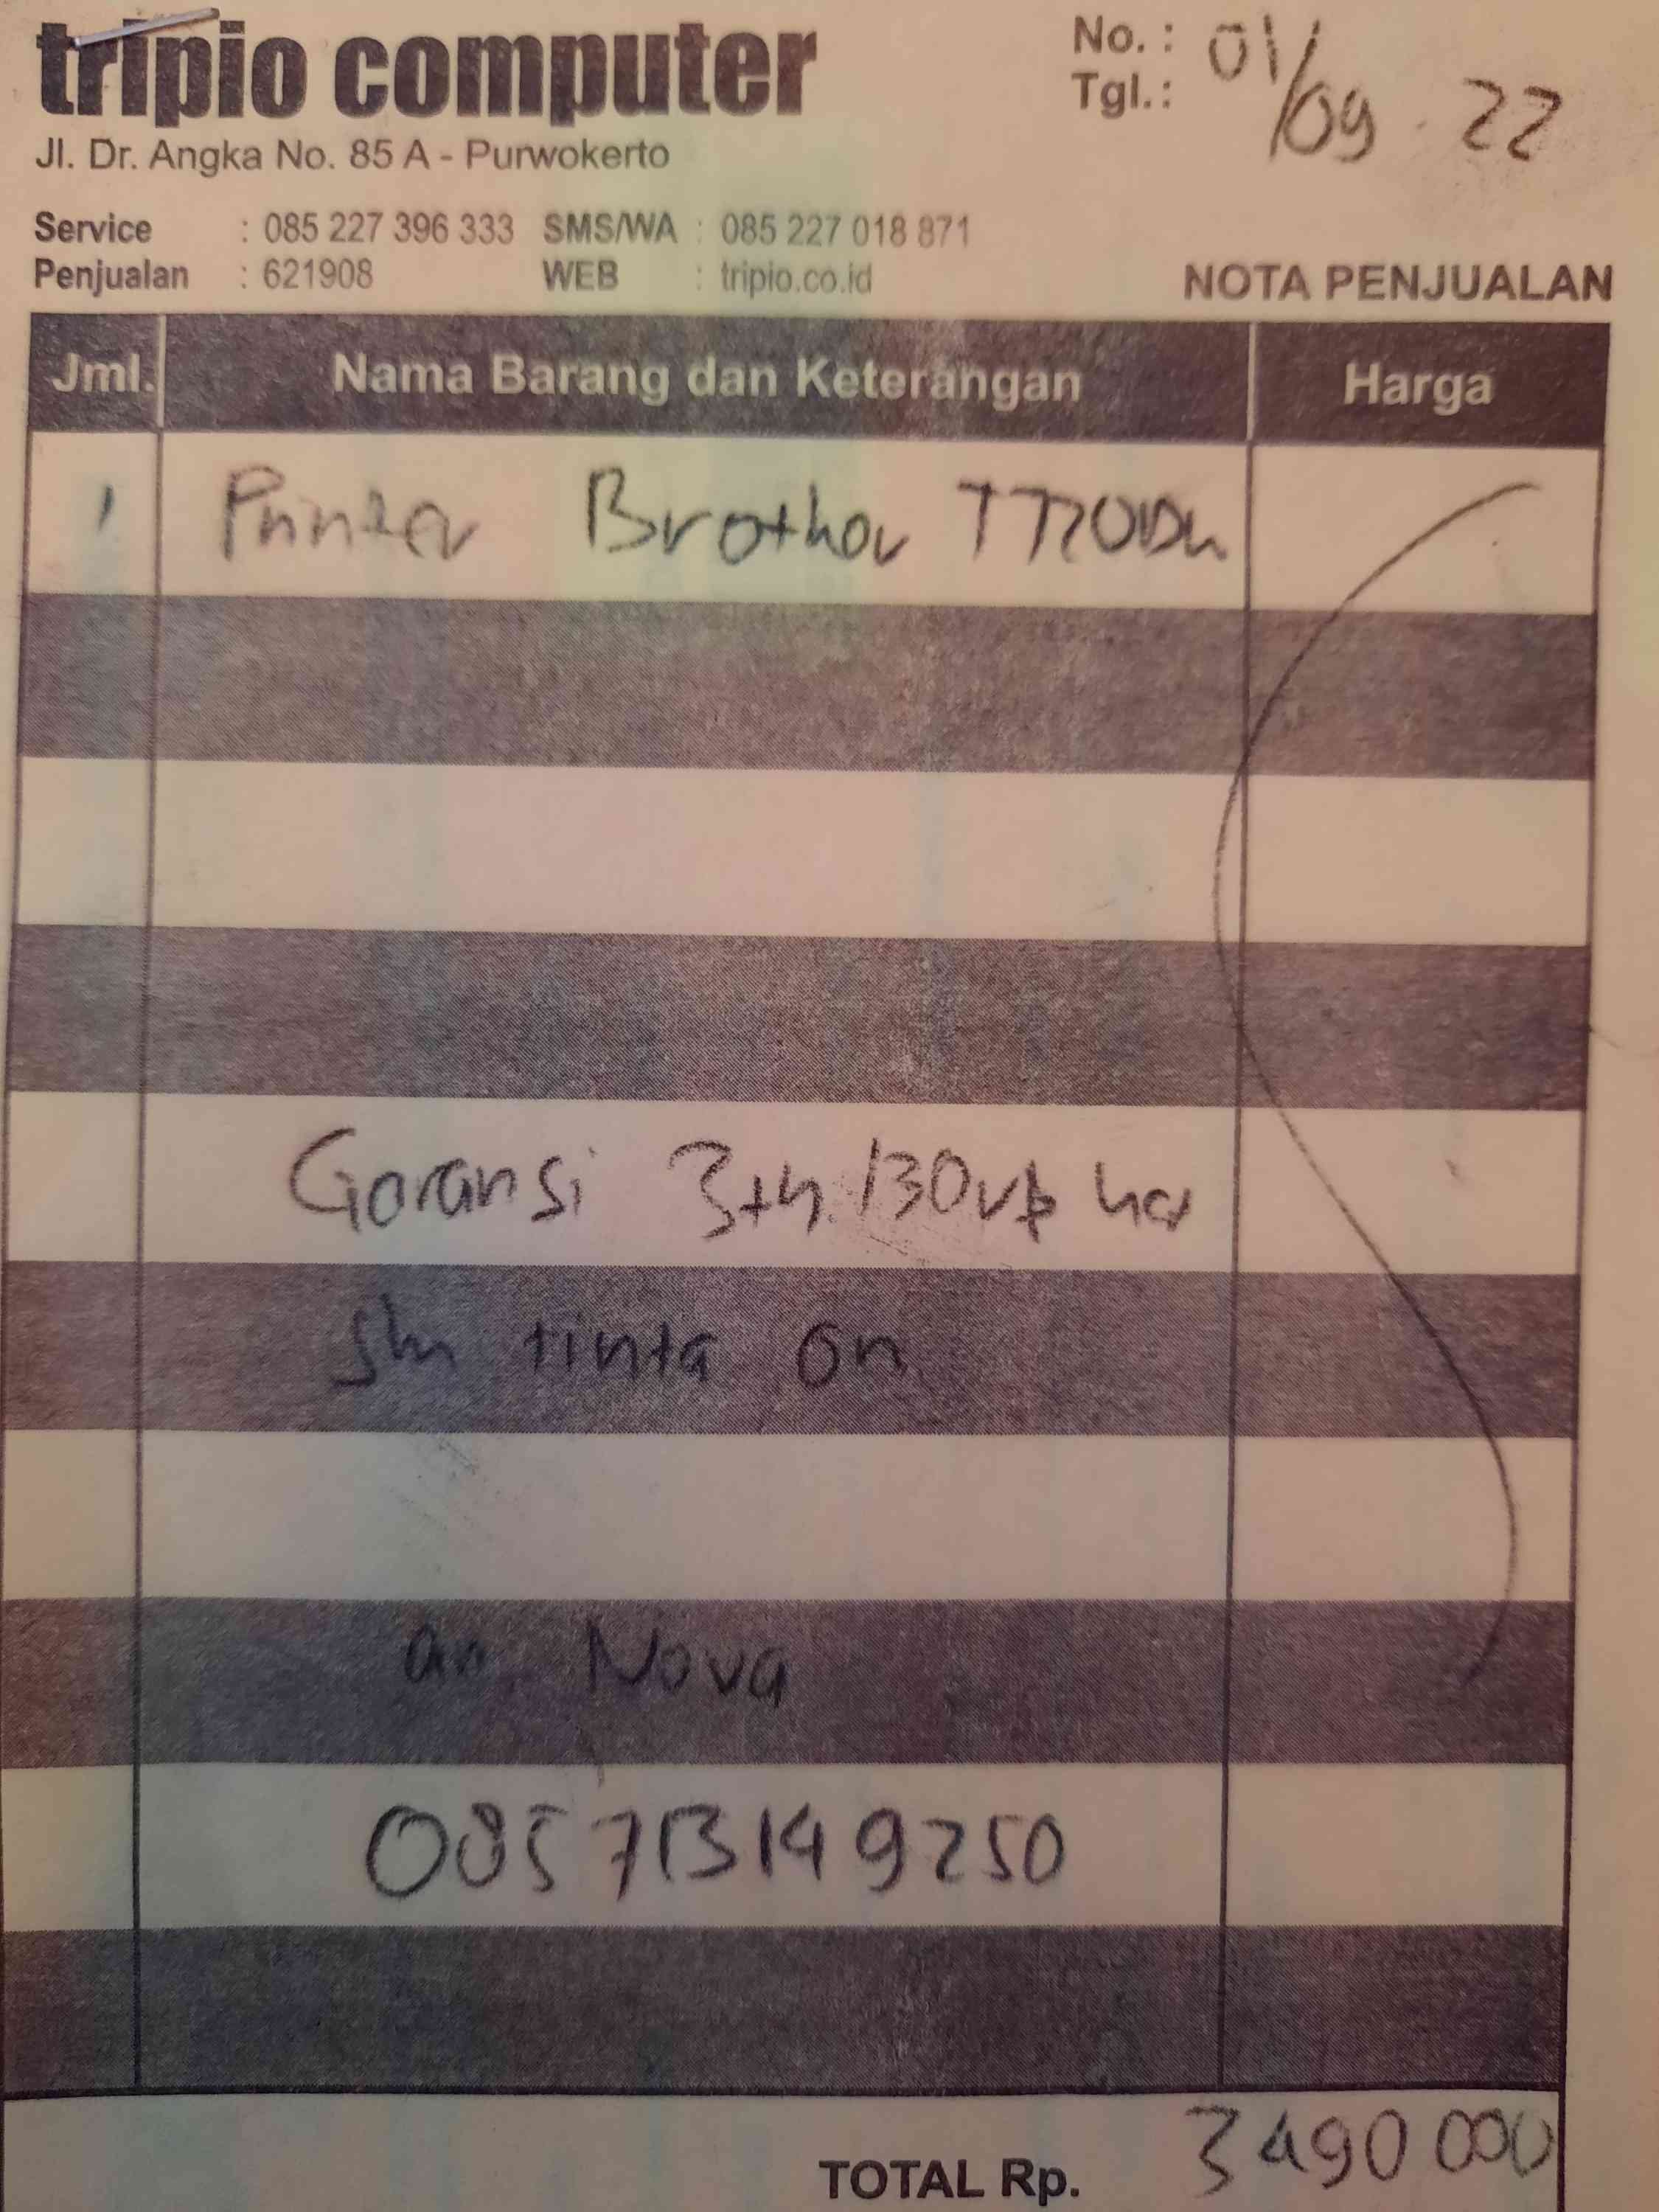 tripio computer
Jl. Dr. Angka No. 85 A - Purwokerto
No. :
Tgl. : 01/09 . 22
Service : 085 227 396 333 SMS/WA : 085 227 018 871
Penjualan : 621908 WEB : tripio.co.id
NOTA PENJUALAN
Jml. Nama Barang dan Keterangan Harga
1 Printer Brother T720DW
Garansi 3th /30
tinta on
an Nova
085713149250
TOTAL Rp. 3490 000